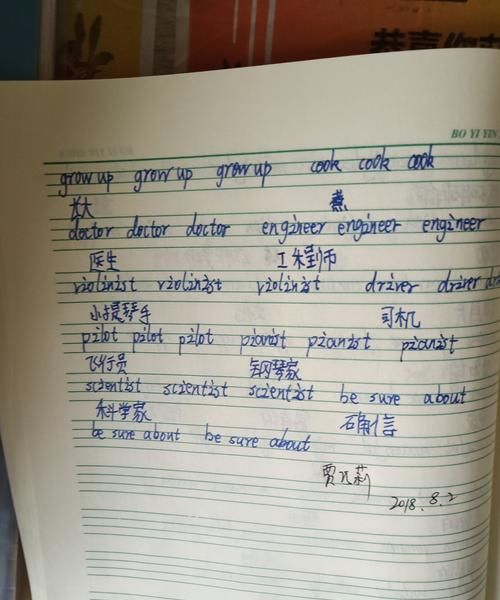 恭喜您获
BO YI YIN
grow up grow up grow up cook cook cook
长大 煮
doctor doctor doctor engineer engineer engineer
医生 工程师
violinist violinist violinist driver driver
小提琴手 司机
pilot pilot pilot pianist pianist pianist
飞行员 钢琴家
scientist scientist scientist be sure about
科学家 确信
be sure about be sure about
2018.8.2